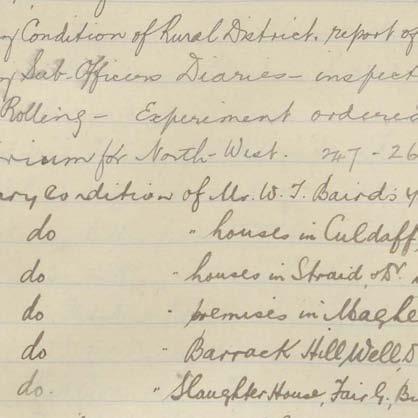 y Condition of Rural District. report of
y Sub-Officers Diaries - inspect
Rolling - Experiment ordered
rium for North-West. 247 - 26
ary Condition of Mr. W. J. Baird's y
do " houses in Culdaff
do " houses in Straid, &
do " premises in Maghe
do " Barrack Hill, Well, D
do. " Slaughter House, Fair G. Bu